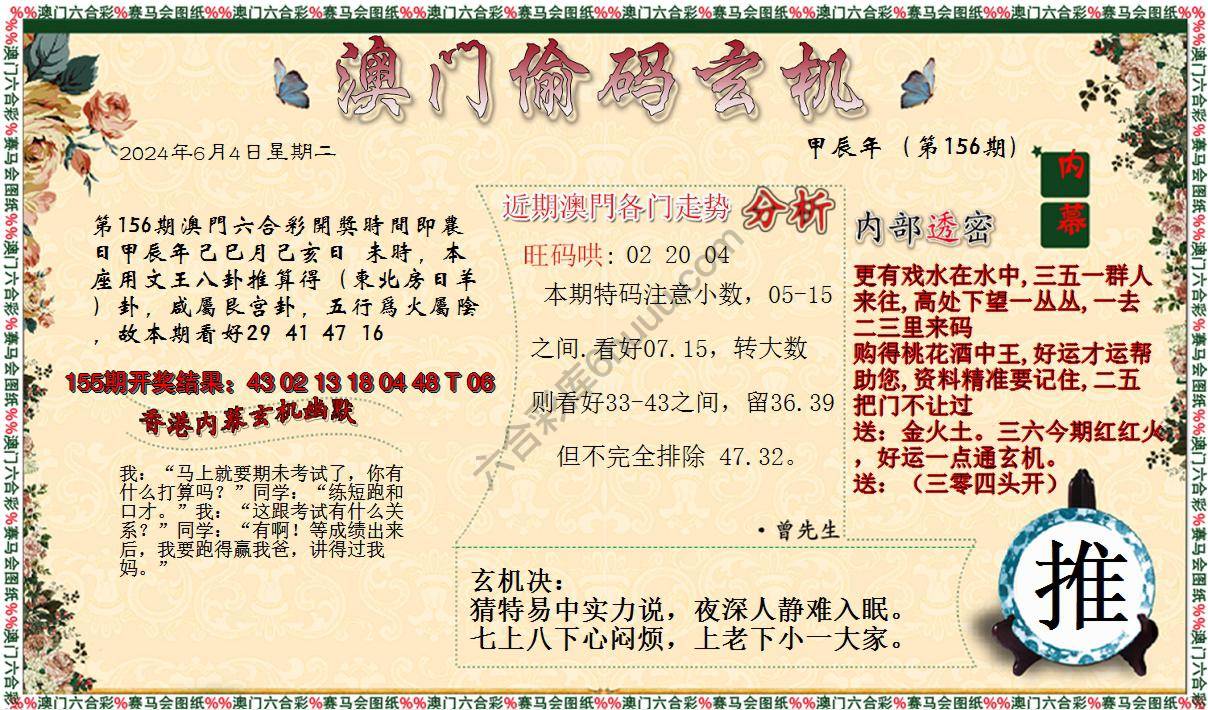 %%澳门六合彩%赛马会图纸%%澳门六合彩%赛马会图纸%%澳门六合彩%赛马会图纸%%澳门六合彩%赛马会图纸%%澳门六合彩%赛马会图纸%%
澳门偷码玄机
2024年6月4日星期二
甲辰年（第156期）
内
幕
第156期澳門六合彩開獎時間即農
日甲辰年己巳月己亥日 未時，本
座用文王八卦推算得（東北房日羊
）卦，咸屬艮宫卦，五行爲火屬陰
，故本期看好29 41 47 16
155期开奖结果：43 02 13 18 04 48 T 06
香港内幕玄机幽默
我：“马上就要期末考试了，你有
什么打算吗？”同学：“练短跑和
口才。”我：“这跟考试有什么关
系？”同学：“有啊！等成绩出来
后，我要跑得赢我爸，讲得过我
妈。”
近期澳門各门走势 分析
旺码哄: 02 20 04
本期特码注意小数，05-15
之间.看好07.15，转大数
则看好33-43之间，留36.39
但不完全排除 47.32。
·曾先生
内部透密
更有戏水在水中,三五一群人
来往,高处下望一丛丛,一去
二三里来码
购得桃花酒中王,好运才运帮
助您,资料精准要记住,二五
把门不让过
送：金火土。三六今期红红火
，好运一点通玄机。
送：（三零四头开）
玄机决：
猜特易中实力说，夜深人静难入眠。
七上八下心闷烦，上老下小一大家。
推
%%澳门六合彩%赛马会图纸%%澳门六合彩%赛马会图纸%%澳门六合彩%赛马会图纸%%澳门六合彩%赛马会图纸%%澳门六合彩%赛马会图纸%%